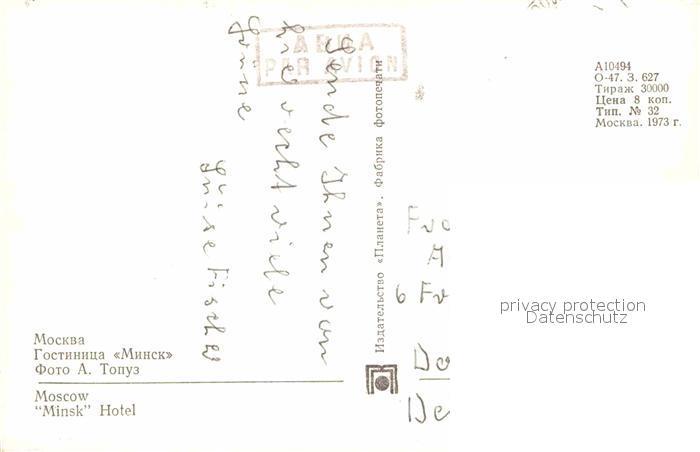 АВИА
PAR AVION
Sende Ihnen von
hier recht viele
Grüsse
Luise Fischer
Издательство «Планета». Фабрика фотопечати
А10494
О-47. З. 627
Тираж 30000
Цена 8 коп.
Тип. № 32
Москва. 1973 г.
6 Fr
privacy protection
Datenschutz
Москва
Гостиница «Минск»
Фото А. Топуз
Moscow
“Minsk” Hotel